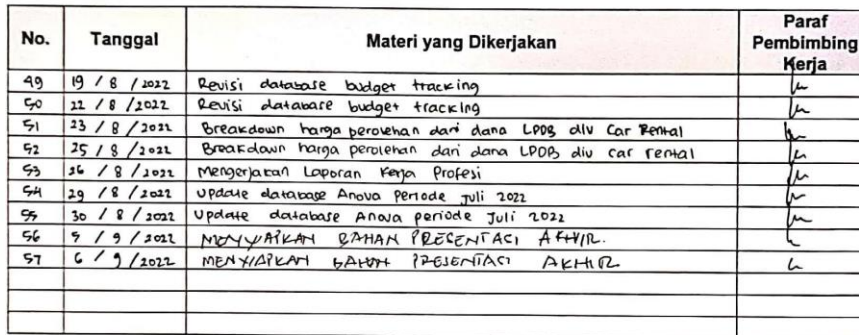 No. Tanggal Materi yang Dikerjakan Paraf Pembimbing Kerja
49 19 / 8 / 2022 Revisi database budget tracking
50 22 / 8 / 2022 Revisi database budget tracking
51 23 / 8 / 2022 Breakdown harga perolehan dari dana LPDB div Car Rental
52 25 / 8 / 2022 Breakdown harga perolehan dari dana LPDB div car rental
53 26 / 8 / 2022 Mengerjakan Laporan Kerja Profesi
54 29 / 8 / 2022 Update database Anova Periode Juli 2022
55 30 / 8 / 2022 Update database Anova periode Juli 2022
56 5 / 9 / 2022 MENYIAPKAN BAHAN PRESENTASI AKHIR.
57 6 / 9 / 2022 MENYIAPKAN BAHAN PRESENTASI AKHIR